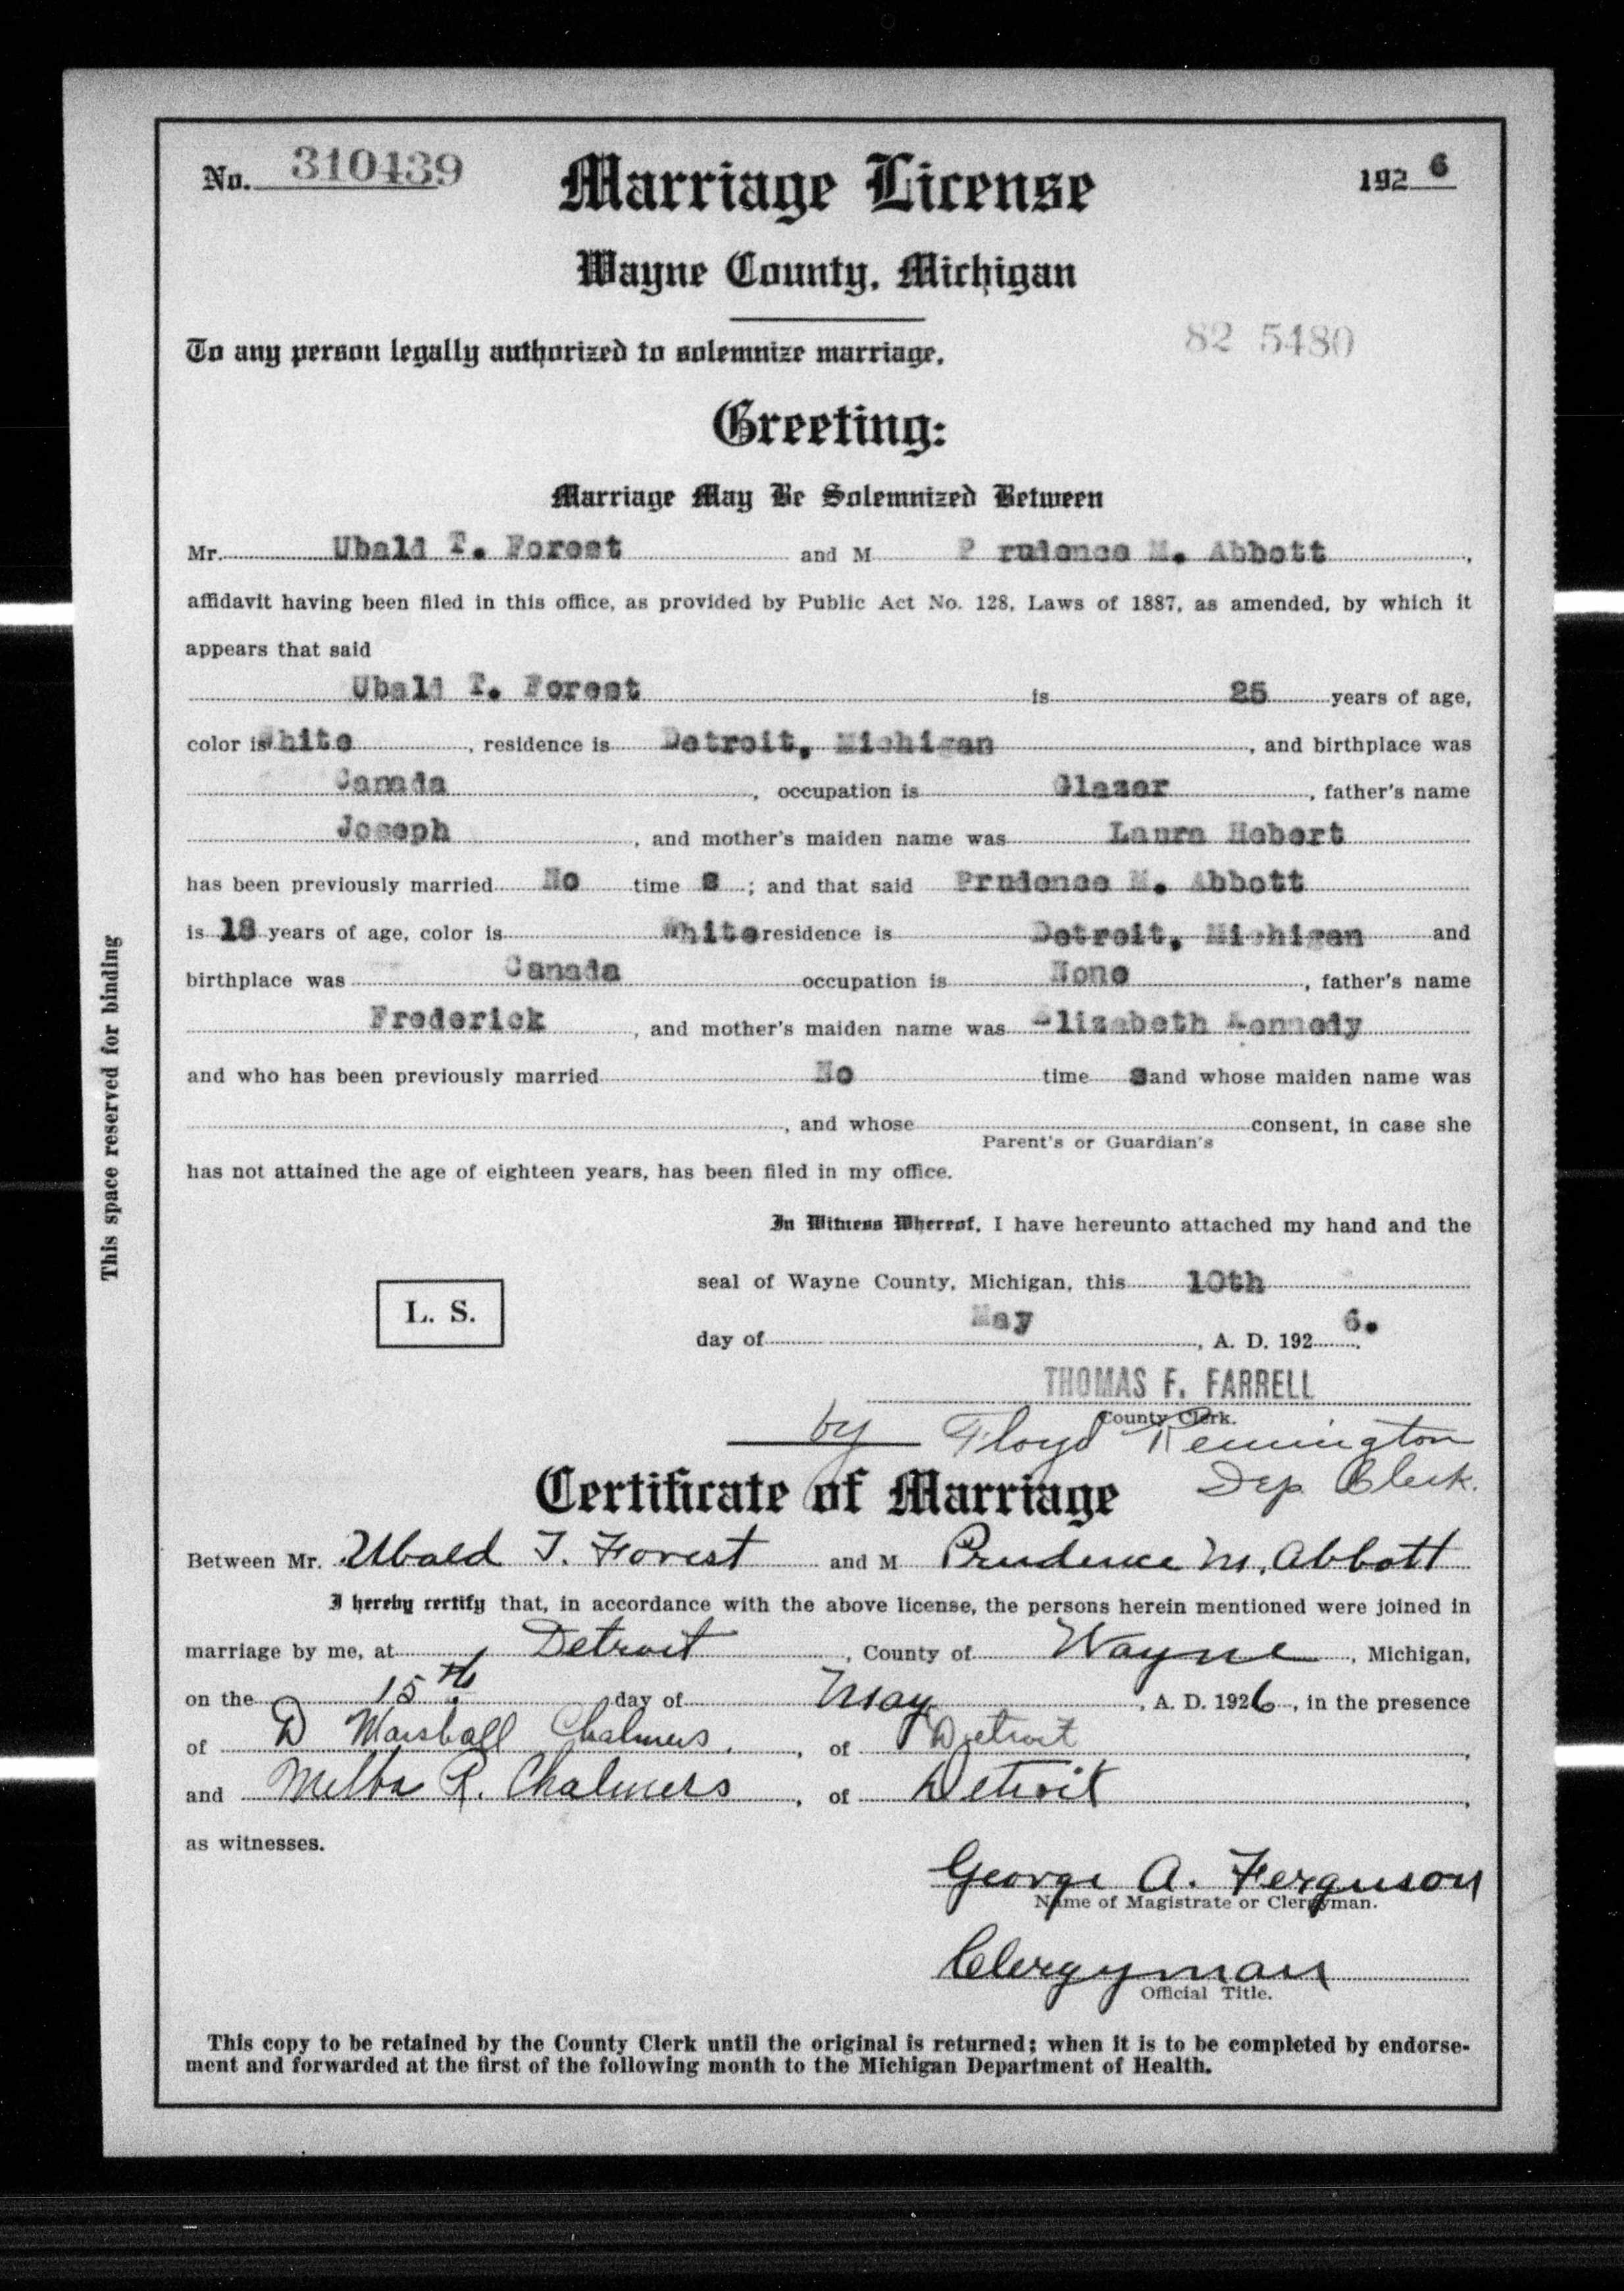 No. 310439 Marriage License 192 6
Wayne County, Michigan
82 5480
To any person legally authorized to solemnize marriage,
Greeting:
Marriage May Be Solemnized Between
Mr. Ubald T. Forest and M P rudence M. Abbott,
affidavit having been filed in this office, as provided by Public Act No. 128, Laws of 1887, as amended, by which it
appears that said
Ubald T. Forest is 25 years of age,
color is White, residence is Detroit, Michigan, and birthplace was
Canada, occupation is Glazer, father's name
Joseph, and mother's maiden name was Laura Hebert
has been previously married No time s; and that said Prudence M. Abbott
is 18 years of age, color is White residence is Detroit, Michigan and
birthplace was Canada occupation is None, father's name
Frederick, and mother's maiden name was Elizabeth Kennedy
and who has been previously married No time s and whose maiden name was
, and whose consent, in case she
Parent's or Guardian's
has not attained the age of eighteen years, has been filed in my office.
In Witness Whereof, I have hereunto attached my hand and the
seal of Wayne County, Michigan, this 10th
L. S.
day of May, A. D. 192 6.
THOMAS F. FARRELL
County Clerk.
by Floyd Remington
Dep Clerk.
Certificate of Marriage
Between Mr. Ubald T. Forest and M Prudence M. Abbott
I hereby certify that, in accordance with the above license, the persons herein mentioned were joined in
marriage by me, at Detroit, County of Wayne, Michigan,
on the 15th day of May, A. D. 1926, in the presence
of D Marshall Chalmers, of Detroit,
and Melba R. Chalmers, of Detroit,
as witnesses.
George A. Ferguson
Name of Magistrate or Clergyman.
Clergyman
Official Title.
This copy to be retained by the County Clerk until the original is returned; when it is to be completed by endorse-
ment and forwarded at the first of the following month to the Michigan Department of Health.
This space reserved for binding